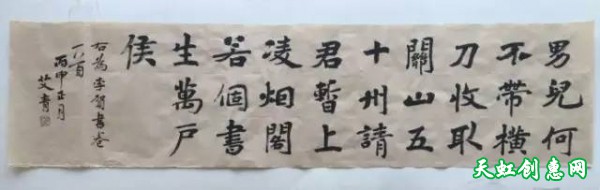 男兒何
不帶橫
刀收取
關山五
十州請
君暫上
凌烟閣
若個書
生萬户
侯
右為李賀書卷
一八首
丙申正月
艾青
天虹创惠网